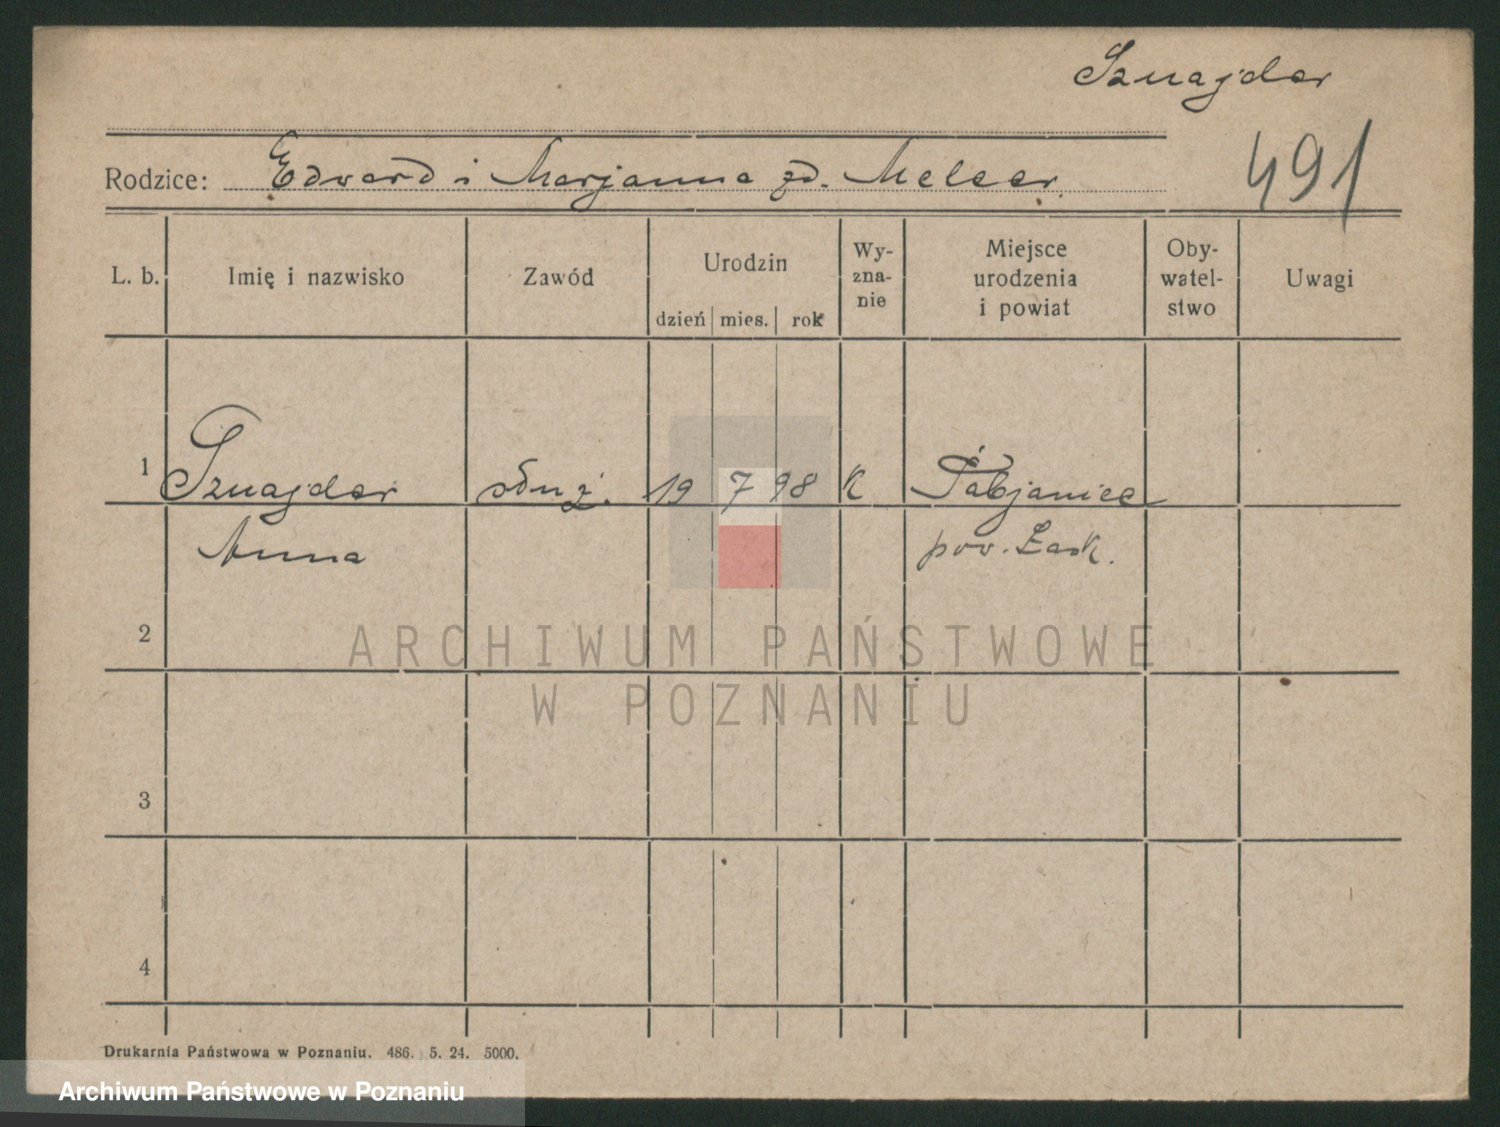 Sznajder
Rodzice: Edward i Marjanna zd. Melcer
491
L. b. Imię i nazwisko Zawód Urodzin dzień mies. rok Wy-zna-nie Miejsce urodzenia i powiat Oby-watel-stwo Uwagi
1 Sznajder służ. 19 7 98 K Pabjanice
Anna pow. Łask.
2
ARCHIWUM PAŃSTWOWE
W POZNANIU
3
4
Drukarnia Państwowa w Poznaniu. 486. 5. 24. 5000.
Archiwum Państwowe w Poznaniu